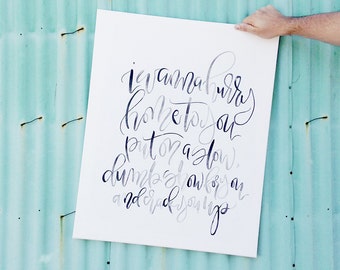 i wanna hurry
home to you
put on a slow,
dumb show for you
and crack you up